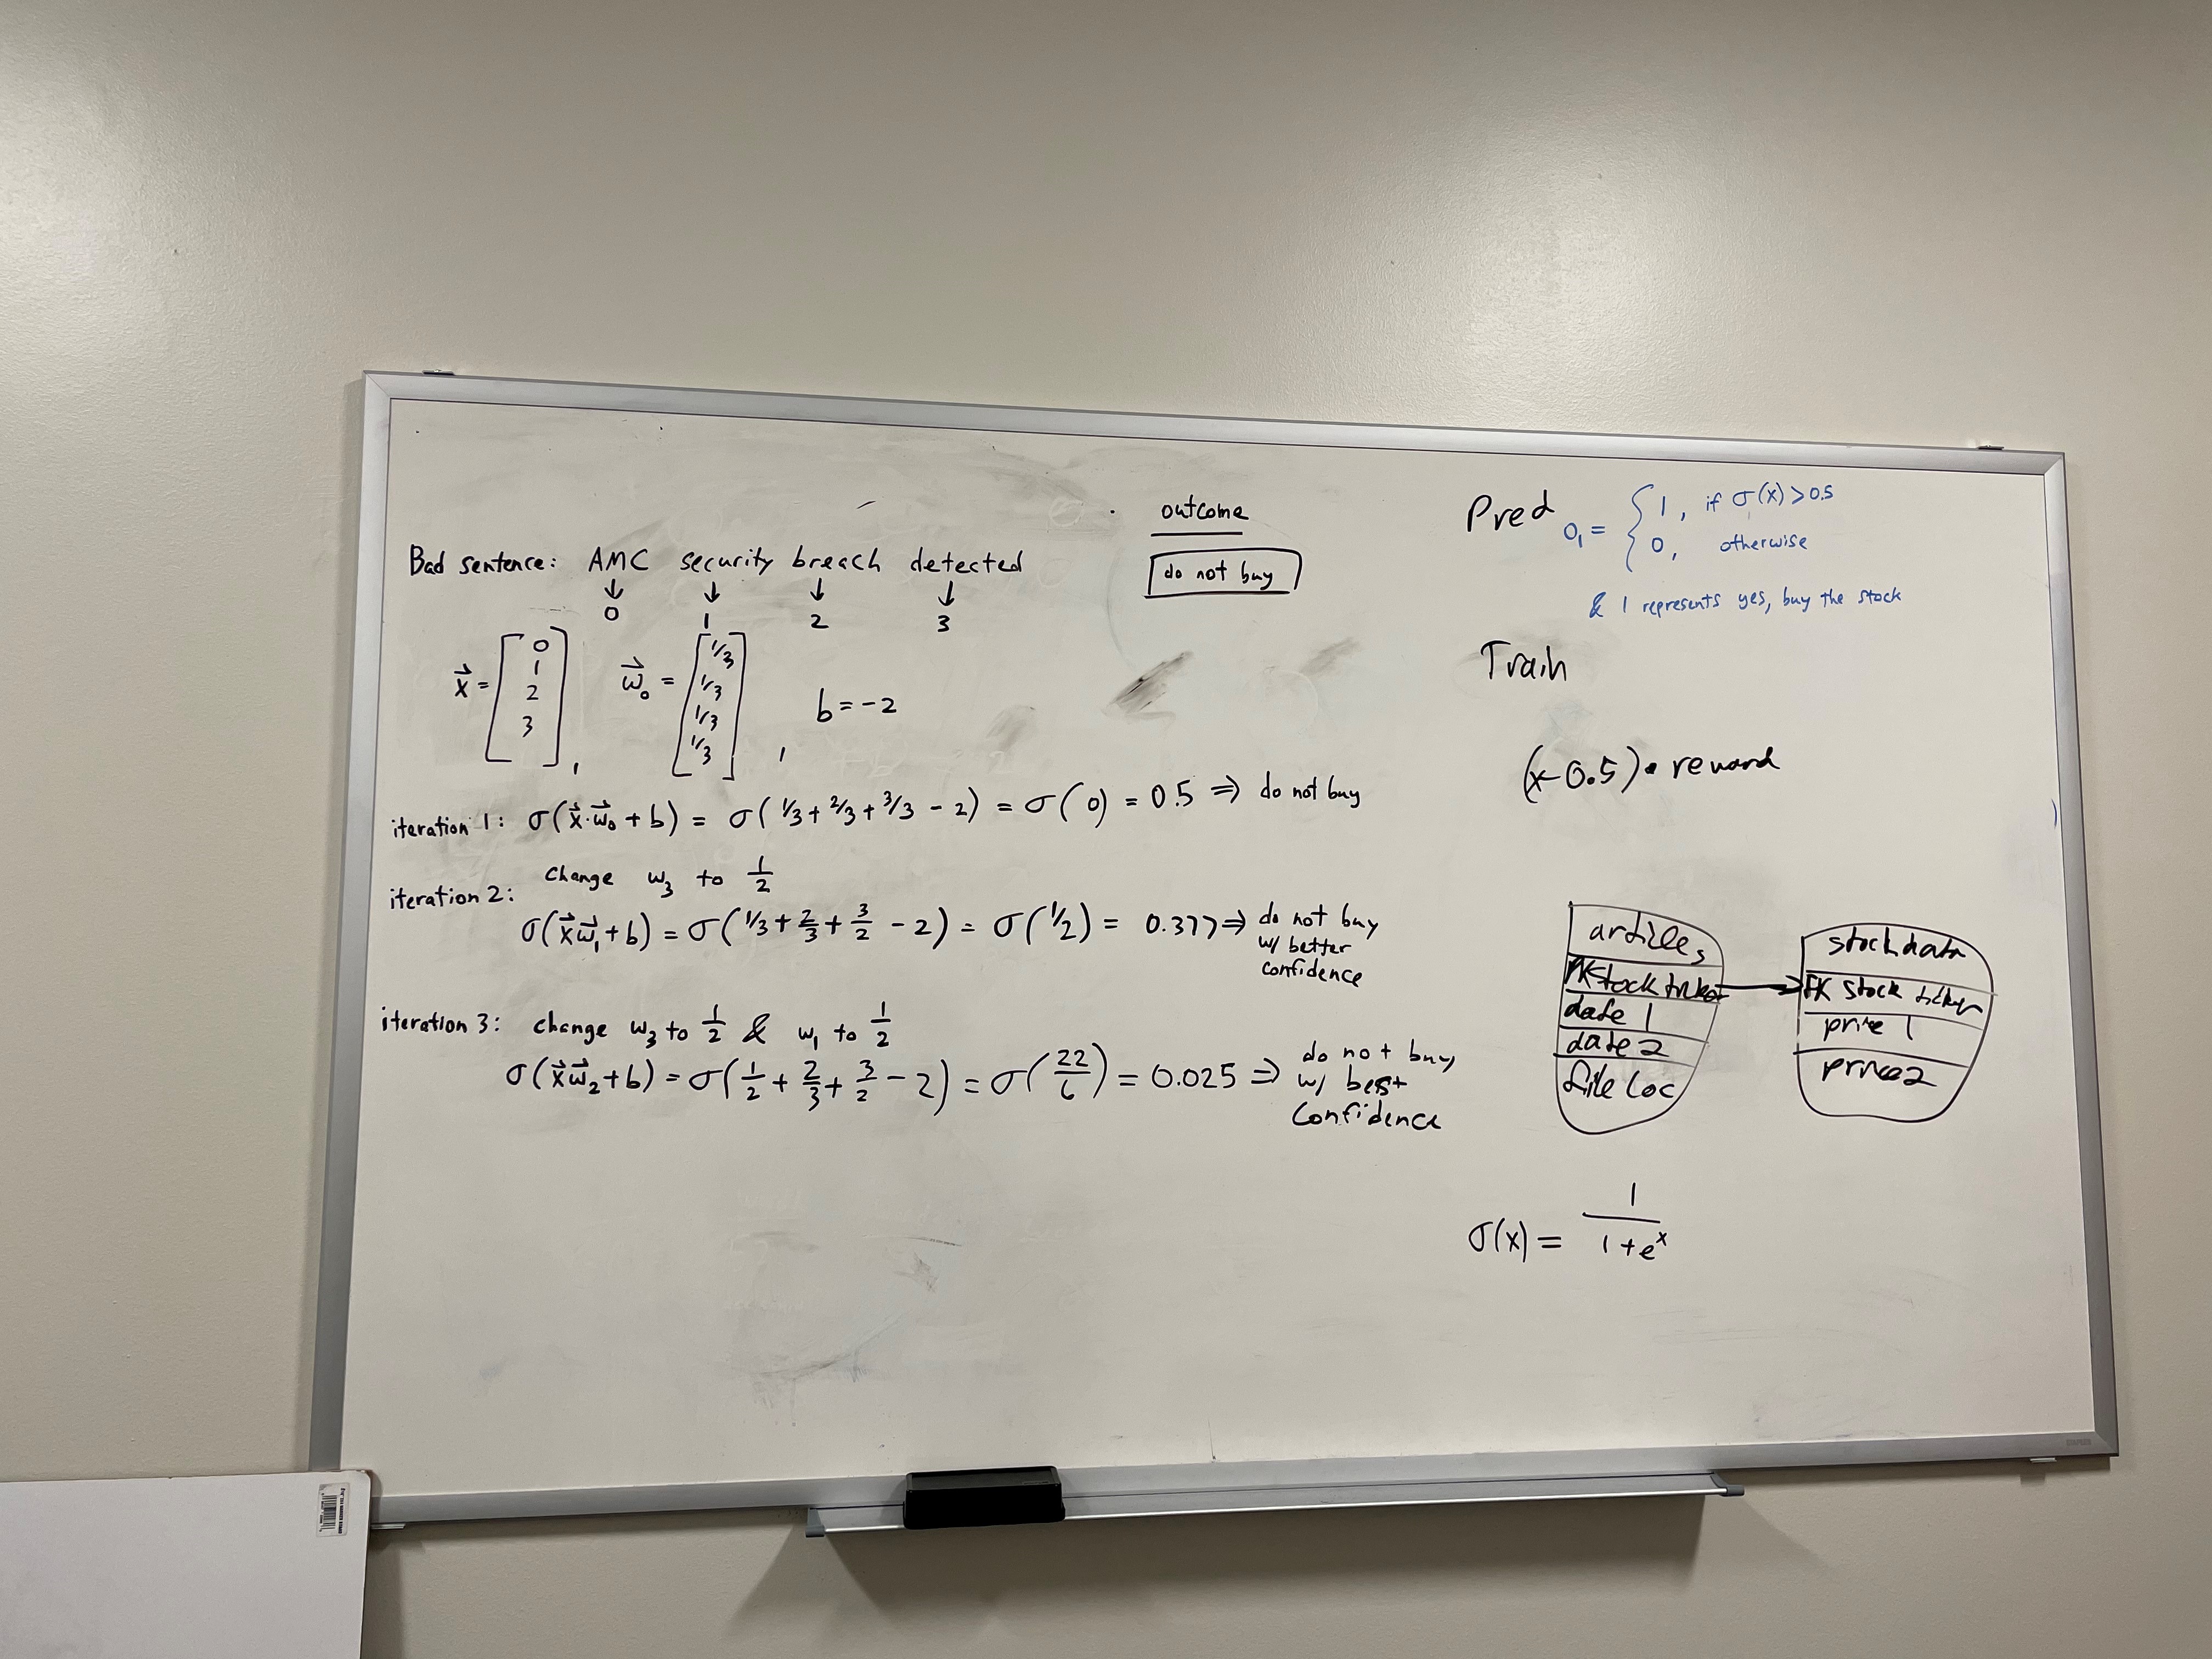 outcome
do not buy
Bad sentence: AMC security breach detected
↓ ↓ ↓ ↓
0 1 2 3
x⃗ = [0 1 2 3], w⃗₀ = [1/3 1/3 1/3 1/3], b = -2
iteration 1: σ(x⃗·w⃗₀ + b) = σ(1/3 + 2/3 + 3/3 - 2) = σ(0) = 0.5 ⇒ do not buy
iteration 2: change w₃ to 1/2
σ(x⃗w⃗₁ + b) = σ(1/3 + 2/3 + 3/2 - 2) = σ(1/2) = 0.377 ⇒ do not buy
w/ better
confidence
iteration 3: change w₃ to 1/2 & w₁ to 1/2
σ(x⃗w⃗₂ + b) = σ(1/2 + 2/3 + 3/2 - 2) = σ(22/6) = 0.025 ⇒ do not buy
w/ best
confidence
Pred O₁ = { 1, if σ(x) > 0.5
0, otherwise
& 1 represents yes, buy the stock
Train
(x-0.5)• reward
articles
stock ticker
date 1
date 2
file loc
stockdata
FK stock ticker
price 1
price 2
σ(x) = 1/(1+eˣ)